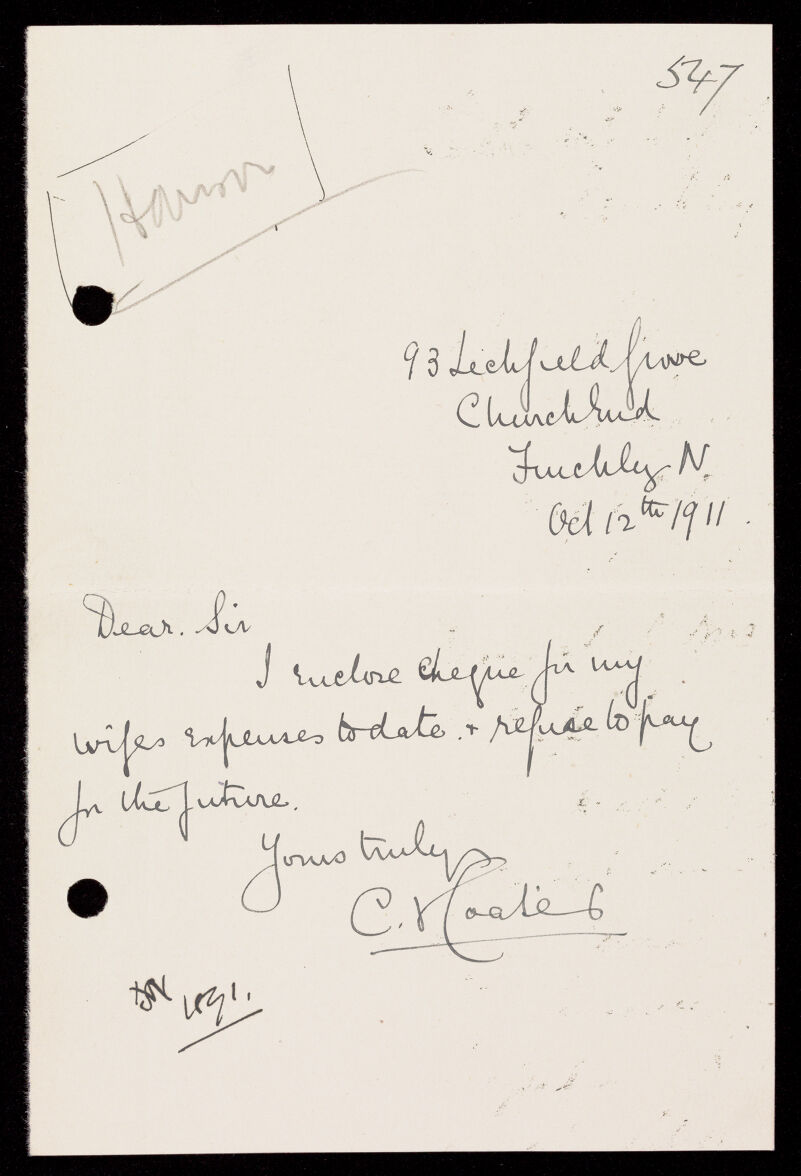 547
93 Lechfield Grove
Church End
Finchley N.
Oct 12th 1911.
Dear. Sir
I enclose cheque for my
wifes expenses to date. + refuse to pay
for the future.
Yours truly
C.